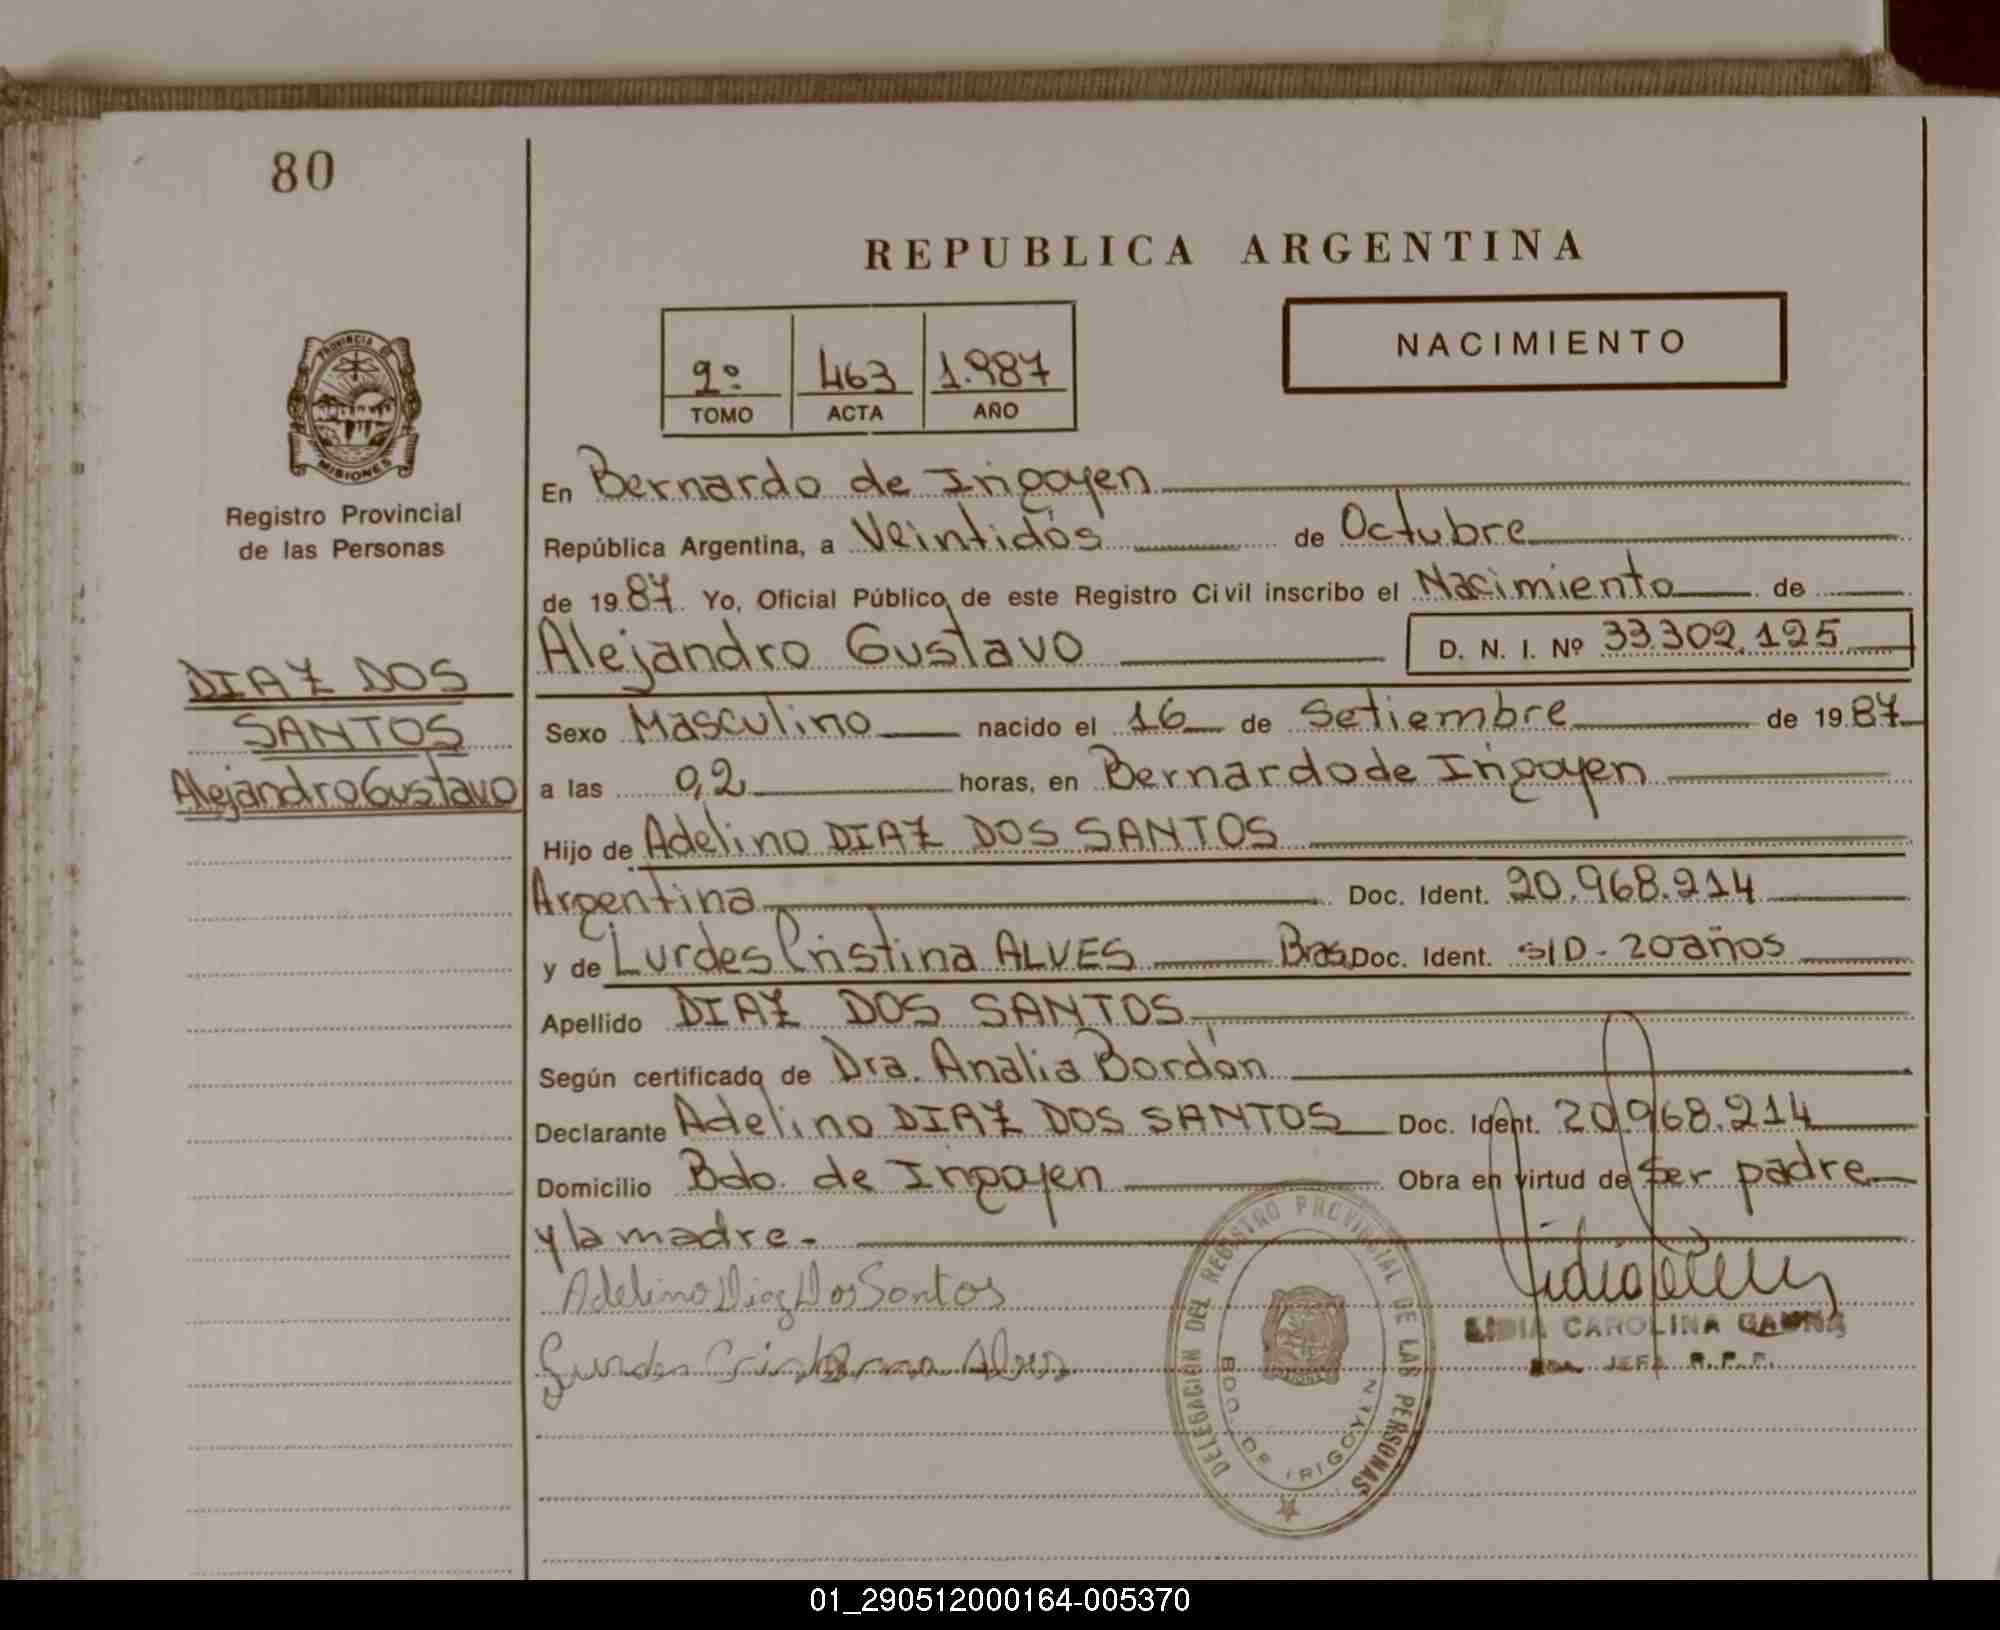 80
REPUBLICA ARGENTINA
2º 463 1.987
TOMO ACTA AÑO
NACIMIENTO
PROVINCIA DE
MISIONES
Registro Provincial
de las Personas
DIAZ DOS
SANTOS
Alejandro Gustavo
En Bernardo de Irigoyen
República Argentina, a Veintidós de Octubre
de 1987. Yo, Oficial Público de este Registro Civil inscribo el Nacimiento de
Alejandro Gustavo D. N. I. Nº 33.302.125
Sexo Masculino nacido el 16 de Setiembre de 1987
a las 02 horas, en Bernardo de Irigoyen
Hijo de Adelino DIAZ DOS SANTOS
Argentina Doc. Ident. 20.968.214
y de Lurdes Cristina ALVES Bras. Doc. Ident. s/D - 20 años
Apellido DIAZ DOS SANTOS
Según certificado de Dra. Analia Bordón
Declarante Adelino DIAZ DOS SANTOS Doc. Ident. 20.968.214
Domicilio Bdo. de Irigoyen Obra en virtud de Ser padre
y la madre.-
Adelino Diaz Dos Santos
DELEGACION DEL REGISTRO PROVINCIAL DE LAS PERSONAS
BDO. DE IRIGOYEN
LIDIA CAROLINA GAUNA
JEFA R.P.P.
01_290512000164-005370